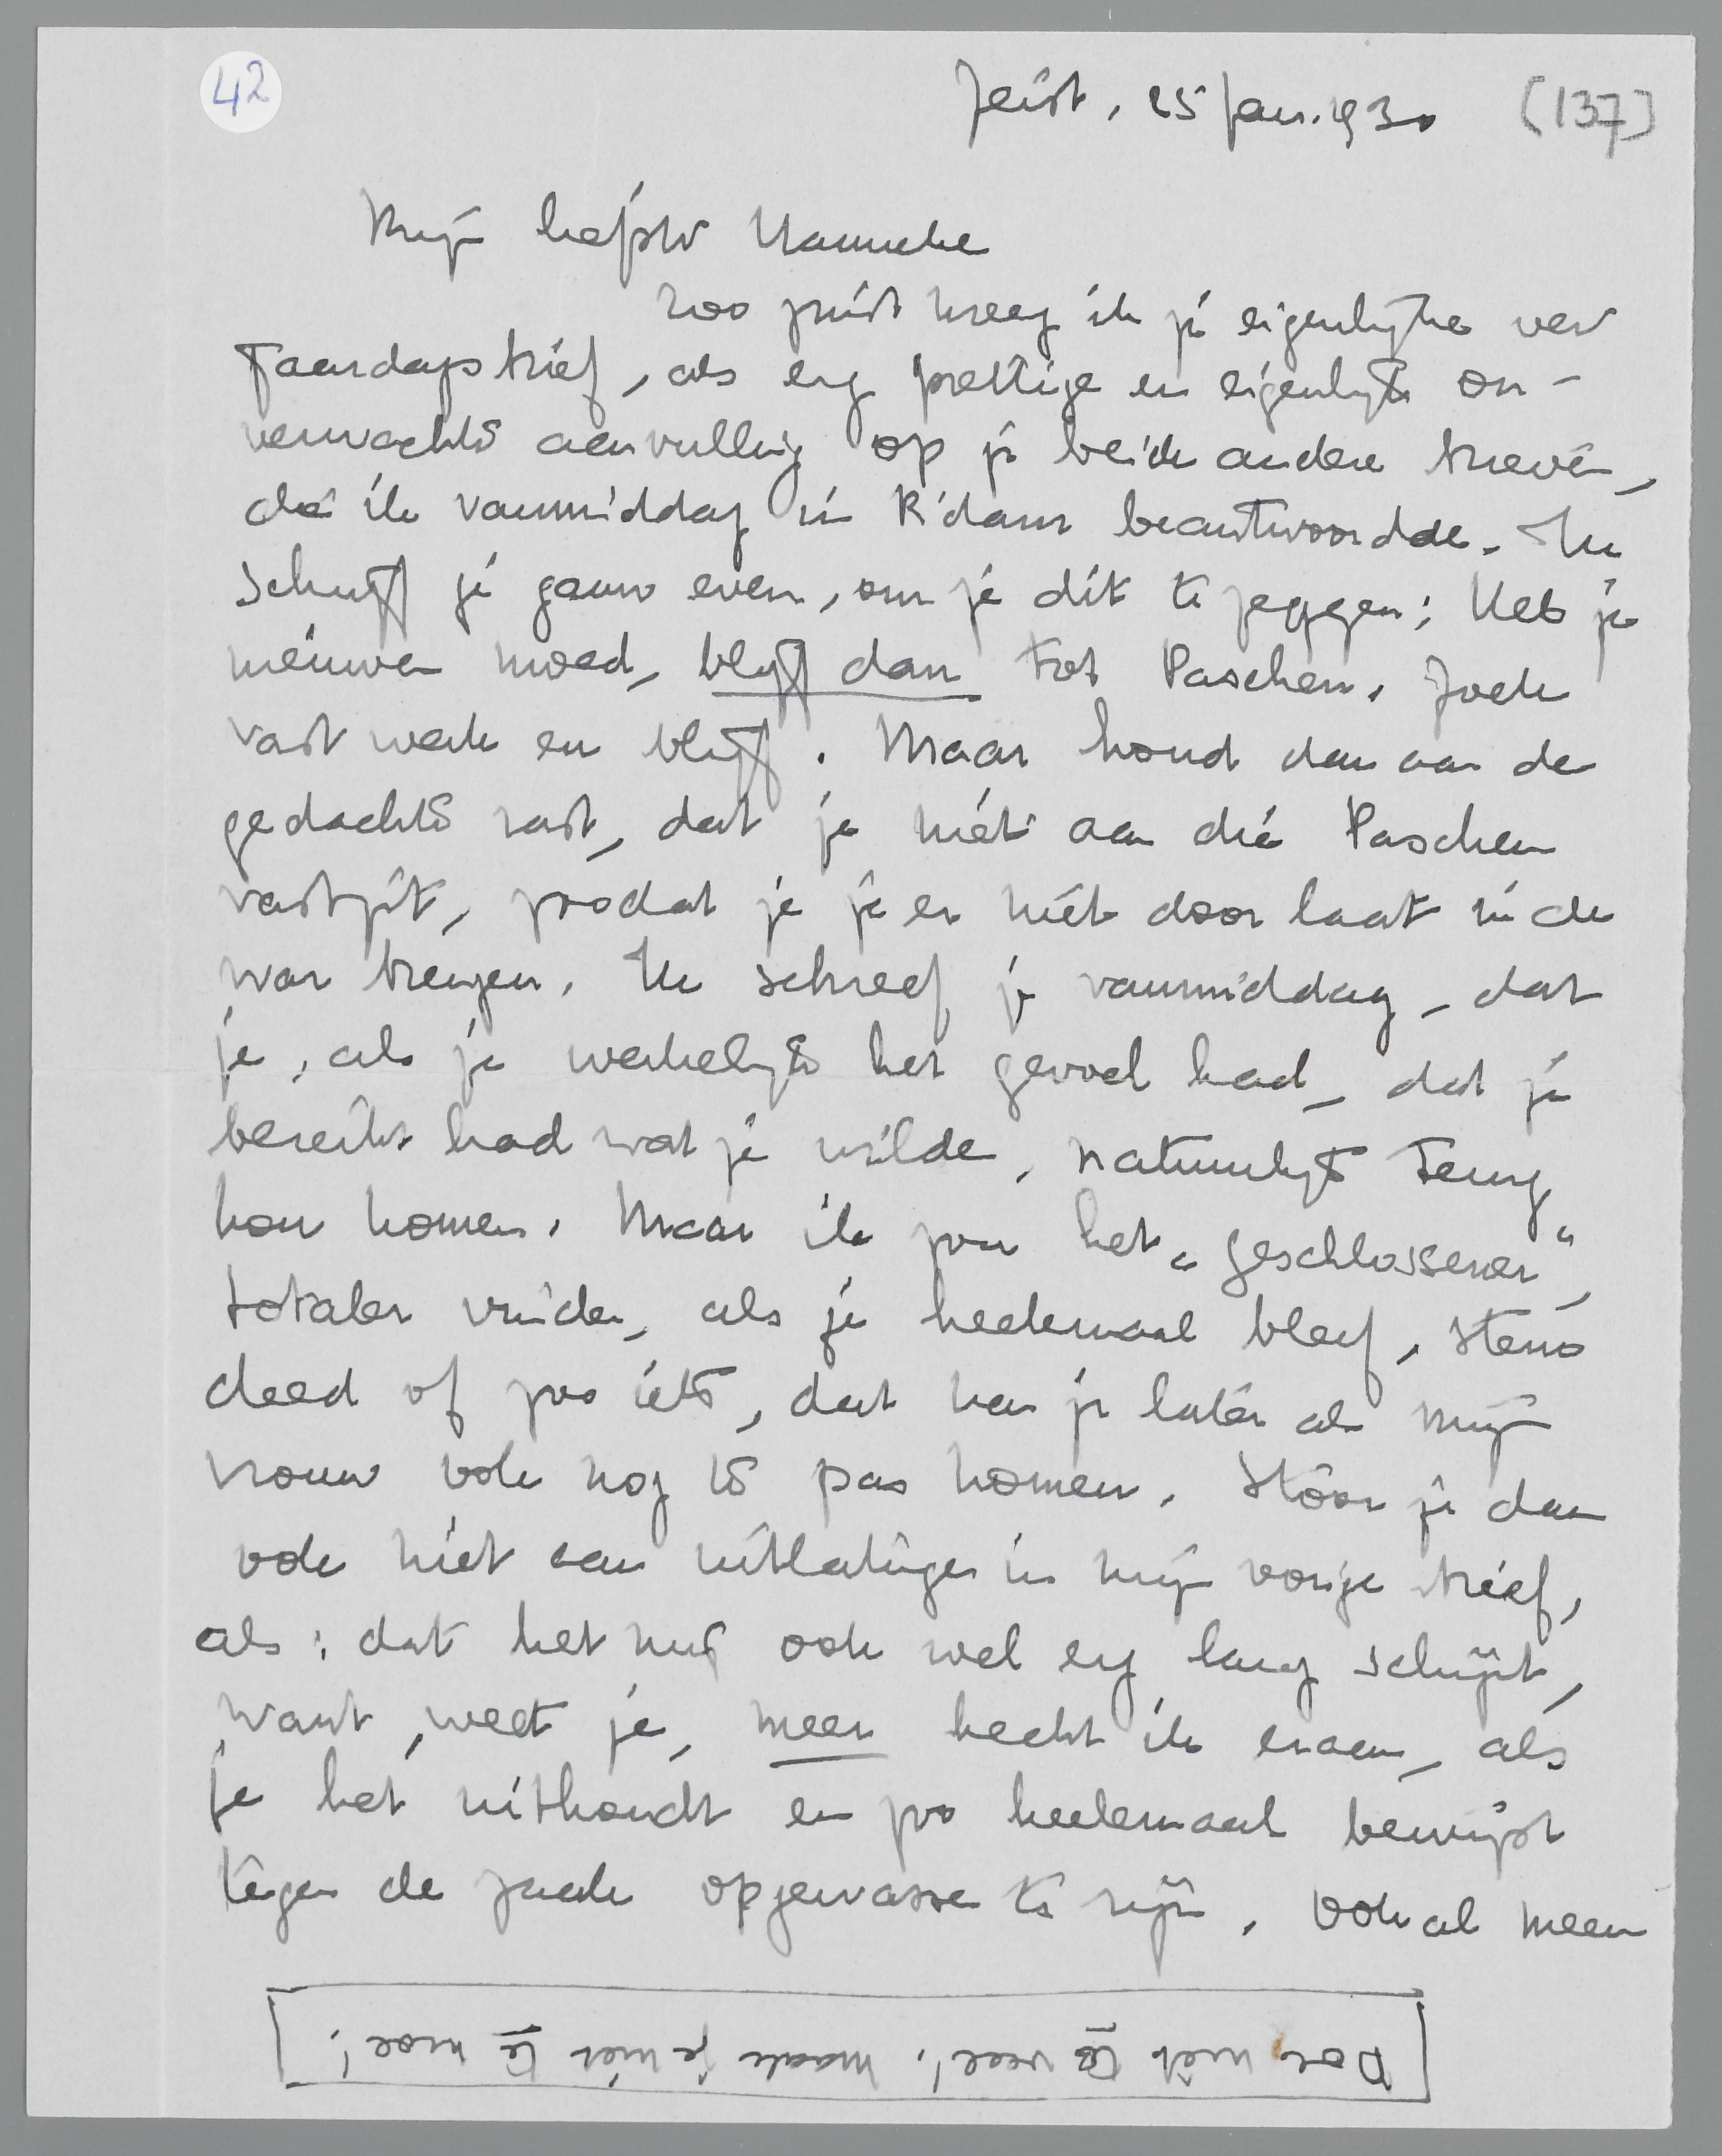 42
Zeist, 25 Jan. 1930 (137)
Mijn liefste Hanneke
zoo juist kreeg ik je eigenlijke ver
jaardagsbrief, als erg prettige en eigenlijk on-
verwachte aanvulling op je beide andere brieven,
die ik vanmiddag in R'dam beantwoordde. Ik
schrijf je gauw even, om je dit te zeggen: Heb je
nieuwen moed, blijf dan tot Paschen. Zoek
vast werk en blijf. Maar houd dan aan de
gedachte vast, dat je niét aan dié Paschen
vastzit, zoodat je je er niét door laat in de
war brengen. Ik schreef je vanmiddag, dat
je, als je werkelijk het gevoel had, dat je
bereikt had wat je wilde, natuurlijk terug
kon komen. Maar ik zou het „geschlossener",
totaler vinden, als je heelemaal bleef, steno
deed of zoo iets, dat kan je later als mijn
vrouw ook nog te pas komen. Stoor je dan
ook niet aan uitlatingen in mijn vorige brief,
als: dat het mij ook wel erg lang schijnt,
want, weet je, meer hecht ik eraan, als
je het uithoudt en zoo heelemaal bewijst
tegen de zaak opgewassen te zijn. Ook al meen
Doe niet te veel! Maak je niet te moe!